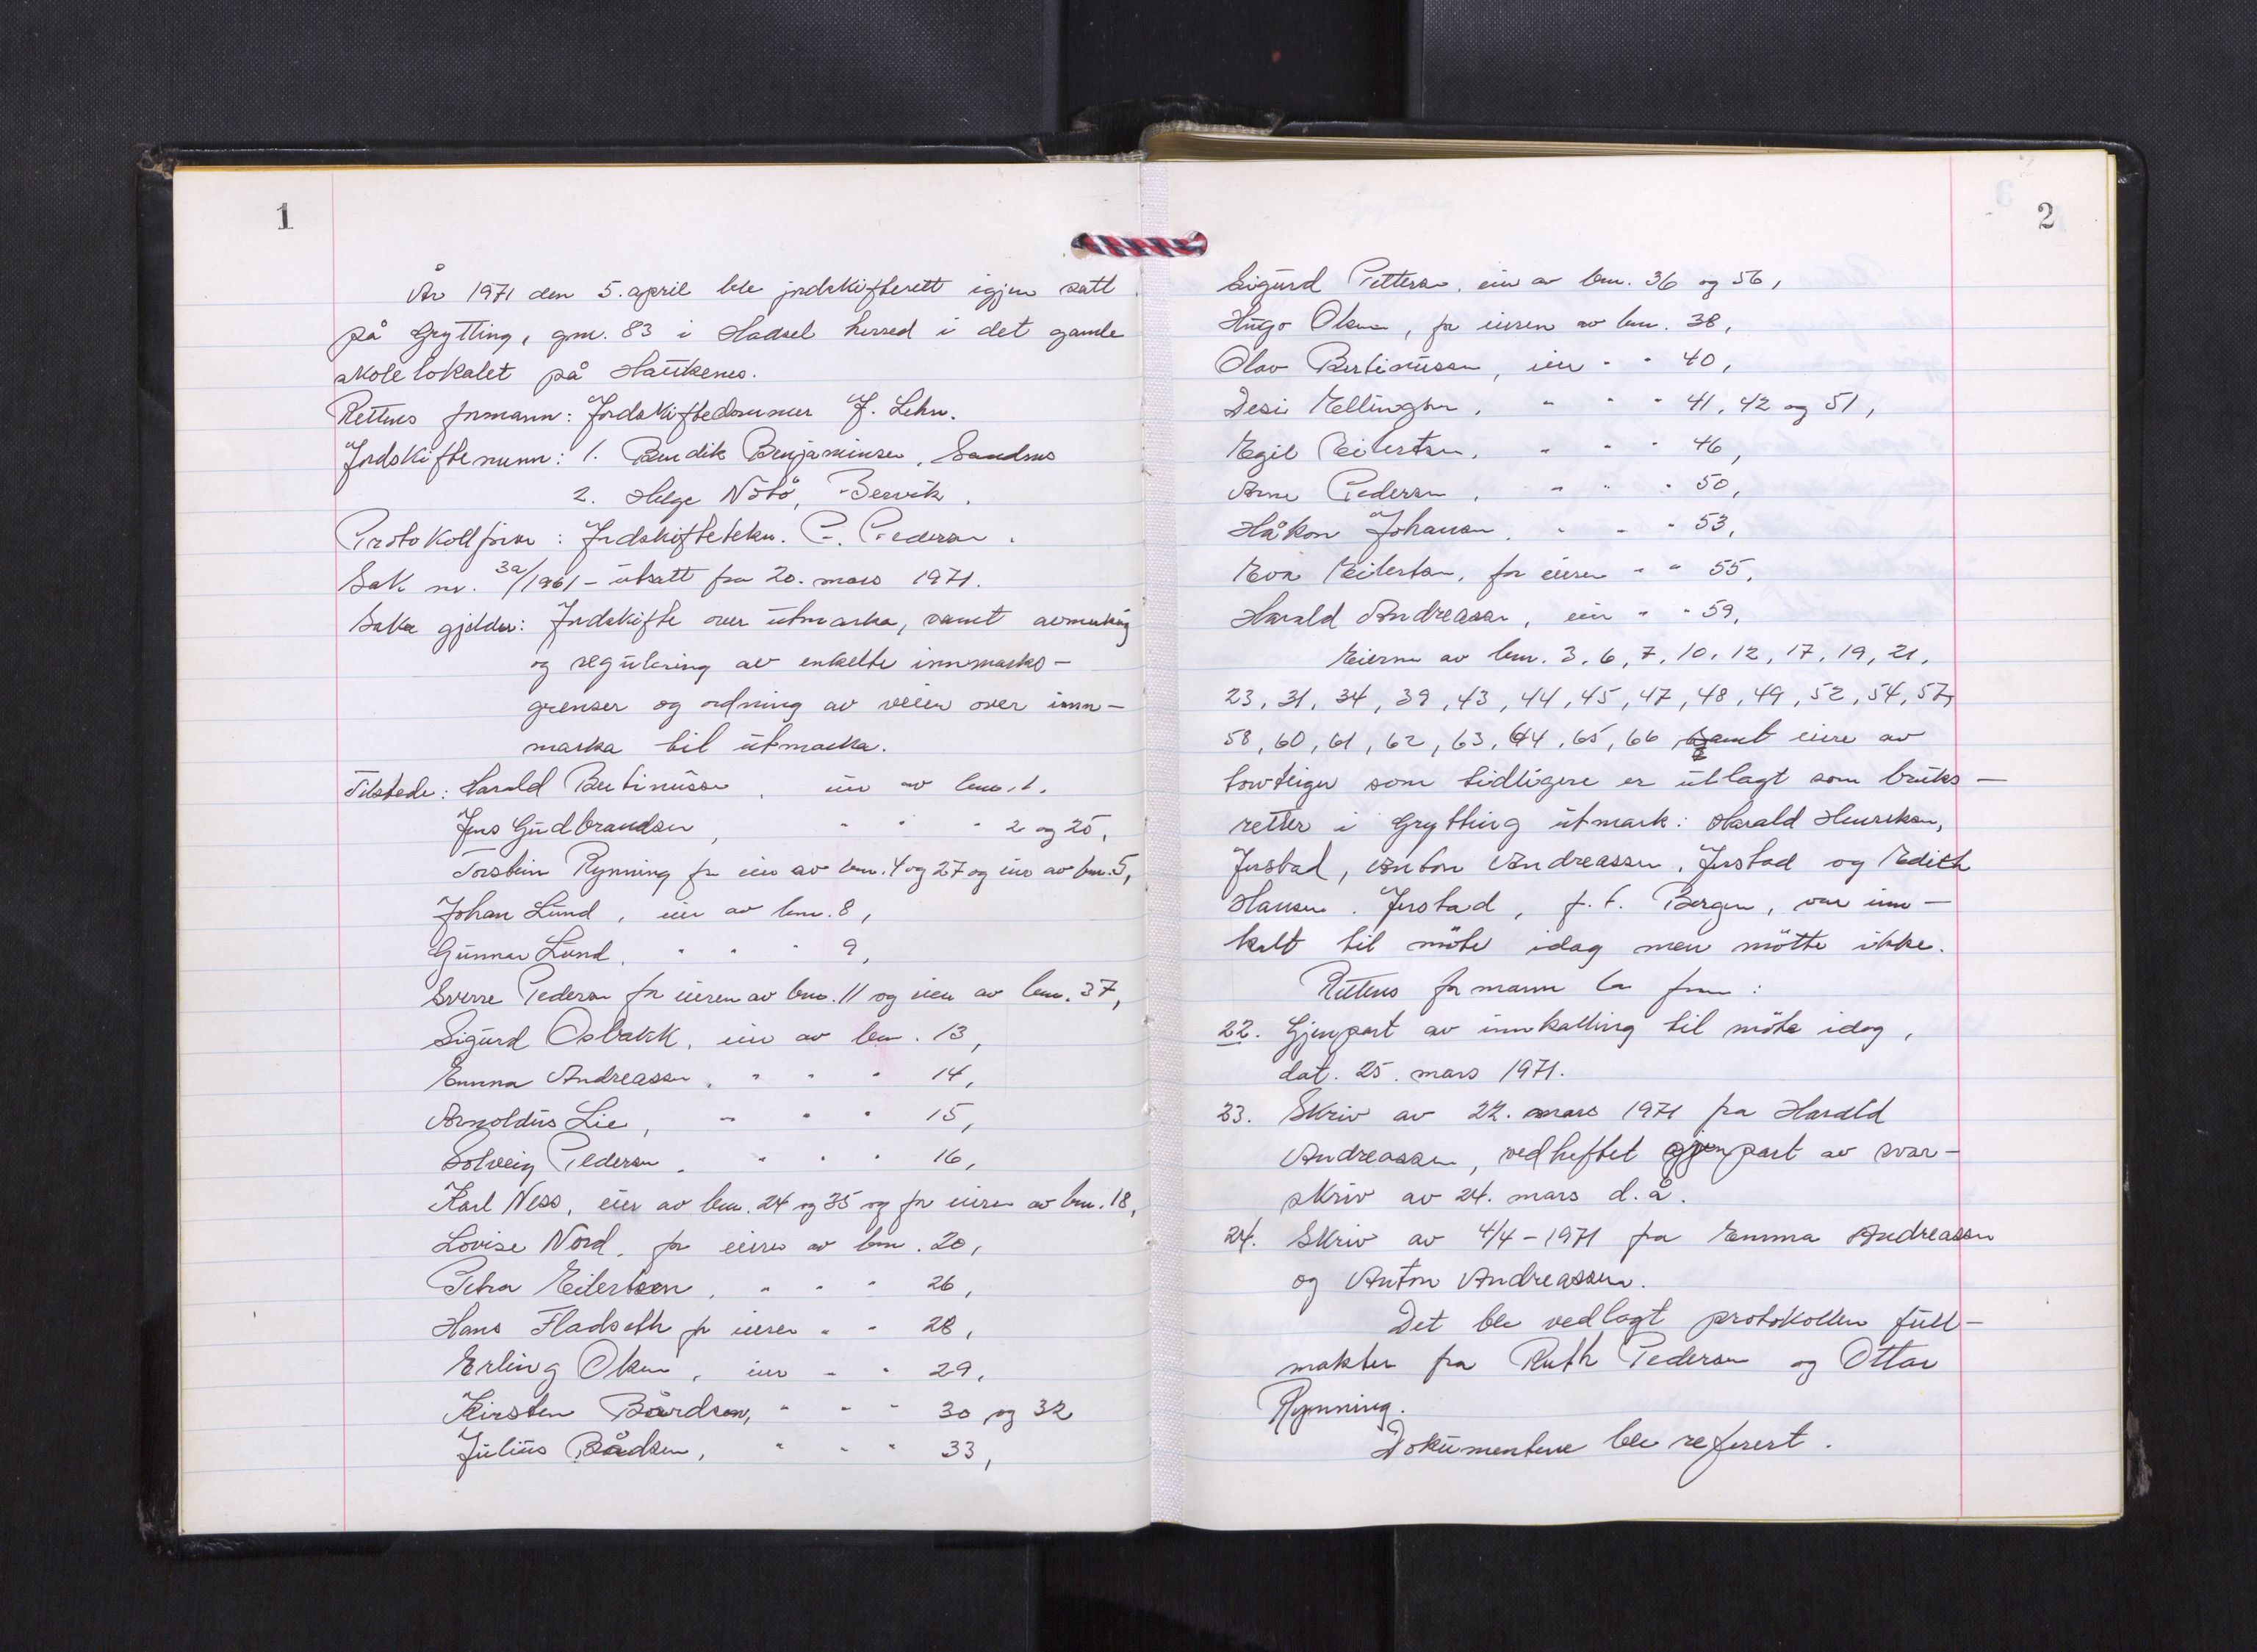 1
År 1971 den 5. april ble jordskifterett igjen satt
på Grytting, gnr. 83 i Hadsel herred i det gamle
skolelokalet på Haukenes.
Rettens formann: Jordskiftedommer J. Lehn.
Jordskiftemenn: 1. Bendik Benjaminsen, Sandnes
2. Helge Nötö, Bervik.
Protokollförer: Jordskiftetekn. P. Pedersen.
Sak nr. 3a/1961 – utsatt fra 20. mars 1971.
Saka gjelder: Jordskifte over utmarka, samt avmerking
og regulering av enkelte innmarks-
grenser og ordning av veien over inn-
marka til utmarka.
Tilstede: Harald Bertinussen, eier av bnr. 1.
Jens Gudbrandsen, " " " 2 og 25,
Torstein Rynning for eier av bnr. 4 og 27 og eier av bnr. 5,
Johan Lund, eier av bnr. 8,
Gunnar Lund, " " " 9,
Sverre Pedersen for eieren av bnr. 11 og eier av bnr. 37,
Sigurd Osbakk, eier av bnr. 13,
Emma Andreassen, " " " 14,
Arnoldus Lie, " " " 15,
Solveig Pedersen, " " " 16,
Karl Ness, eier av bnr. 24 og 35 og for eieren av bnr. 18,
Lovise Nord, for eieren av bnr. 20,
Petra Eilertsen, " " " 26,
Hans Fladseth for eieren " " 28,
Erling Olsen, eier " " 29,
Kirsten Bårdsen, " " " 30 og 32
Julius Bådsen, " " " 33,
2
Sigurd Pettersen, eier av bnr. 36 og 56,
Hugo Olsen, for eieren av bnr. 38,
Olav Bertinussen, eier " " 40,
Desi Ellingsen, " " " 41, 42 og 51,
Egil Eilertsen, " " " 46,
Arne Pedersen, " " " 50,
Håkon Johansen, " " " 53,
Eva Eilertsen, for eieren " " 55,
Harald Andreassen, eier " " 59,
Eierne av bnr. 3, 6, 7, 10, 12, 17, 19, 21,
23, 31, 34, 39, 43, 44, 45, 47, 48, 49, 52, 54, 57,
58, 60, 61, 62, 63, 64, 65, 66, samt eiere av
torvteiger som tidligere er utlagt som bruks-
retter i Grytting utmark: Harald Henriksen,
Jerstad, Anton Andreassen, Jerstad og Edith
Hansen, Jerstad, f. t. Bergen, var inn-
kalt til möte idag men mötte ikke.
Rettens formann la frem:
22. Gjenpart av innkalling til möte idag,
dat. 25. mars 1971.
23. Skriv av 22. mars 1971 fra Harald
Andreassen, vedheftet gjenpart av svar-
skriv av 24. mars d.å.
24. Skriv av 4/4-1971 fra Emma Andreassen
og Anton Andreassen.
Det ble vedlagt protokollen full-
makter fra Ruth Pedersen og Ottar
Rynning.
Dokumentene ble referert.